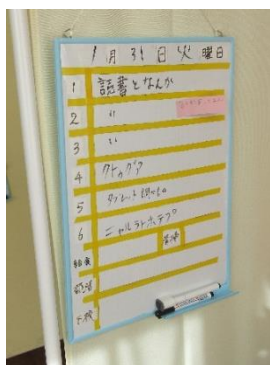 1月31日火曜日
1 読書となんか
2 〃
3 〃
4 クトゥグア
5 タブレット
6 ニャルラトホテプ
給食